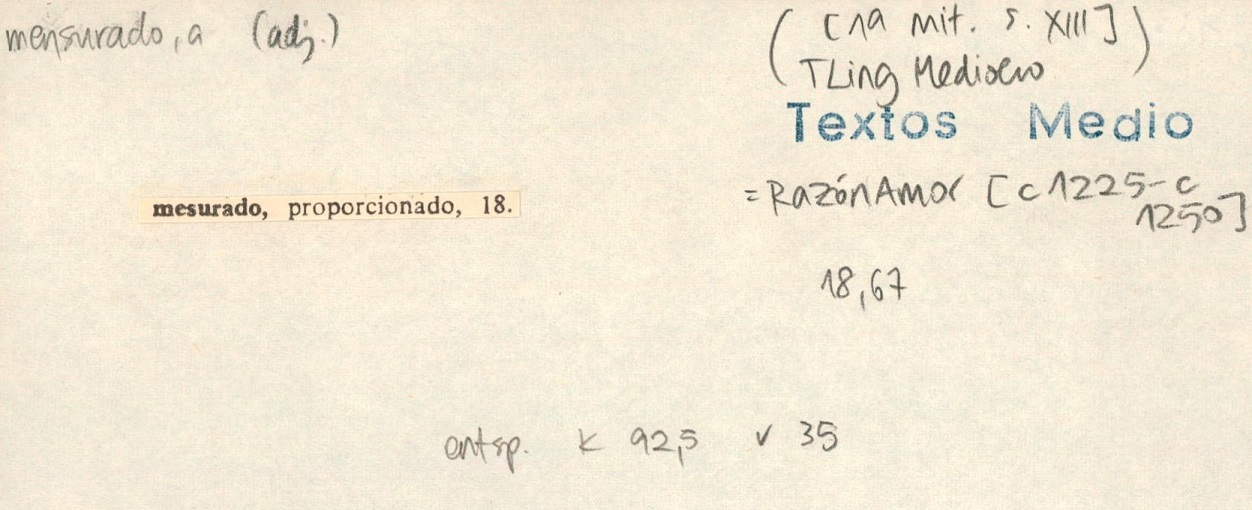 mensurado, a (adj.)
([1a mit. s. XIII]
TLing Medioevo)
Textos Medio
= RazónAmor [c 1225-c
1250]
mesurado, proporcionado, 18.
18,67
entsp. K 92,5 v 35